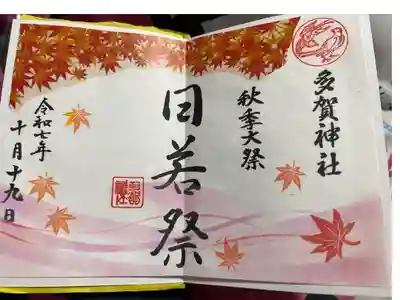 多賀神社
秋季大祭
日若祭
令和七年
十月十九日